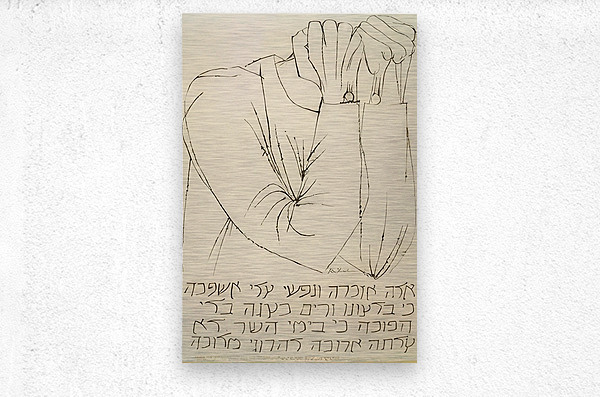 אלה אזכרה ונפשי עלי אשפכה
כי בלעונו זרים כעגה בלי
הפוכה כי בימי השר לא
עלתה ארוכה להרוגי מלוכה